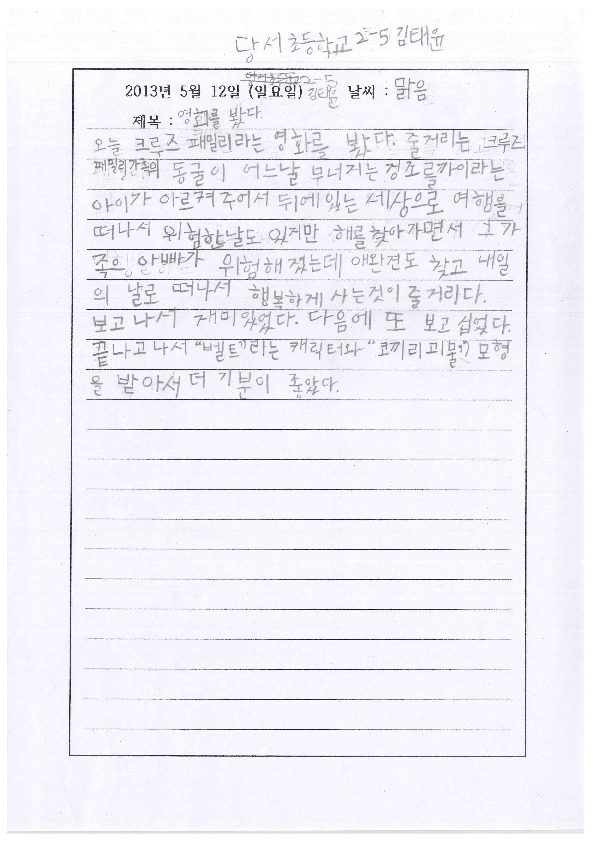 당서초등학교 2-5 김태윤
당서초등학교 2-5
2013년 5월 12일 (일요일) 김태윤 날씨 : 맑음
제목 : 영화를 봤다.
오늘 크루즈 패밀리라는 영화를 봤다. 줄거리는 크루즈
패밀리가족의 동굴이 어느날 무너지는 징조를 가이라는
아이가 아르켜주어서 뒤에있는 세상으로 여행을
떠나서 위험한날도 있지만 해를 찾아가면서 그 가
족은 아빠가 위험해졌는데 애완견도 찾고 내일
의 날로 떠나서 행복하게 사는것이 줄거리다.
보고나서 재미있었다. 다음에 또 보고 십었다.
끝나고나서 "벨트"라는 캐릭터와 "코끼리괴물" 모형
을 받아서 더 기분이 좋았다.